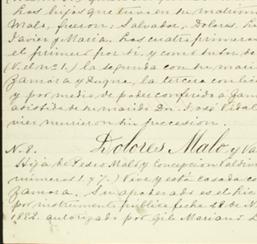 los hijos que tuvo en su matrimo
Malo, fueron: Salvador, Dolores,
Javier y Maria. Las cuatro primeras
el primero por si, y como tutor de
la segunda con su mari
Zamora y Duque, la tercera con lic
y por medio de poder conferido á
asistida de su marido Dn. José
vier murieron sin sucesion.
N. 8. Dolores Malo y Va
Hija de Pedro Malo y Concepcion Valdivi
numeros 1 y 7.) Vive y está casada co
Zamora. Su apoderado es el
por instrumento público fecha 28 de N
1882. autorizado por Gil Mariano L